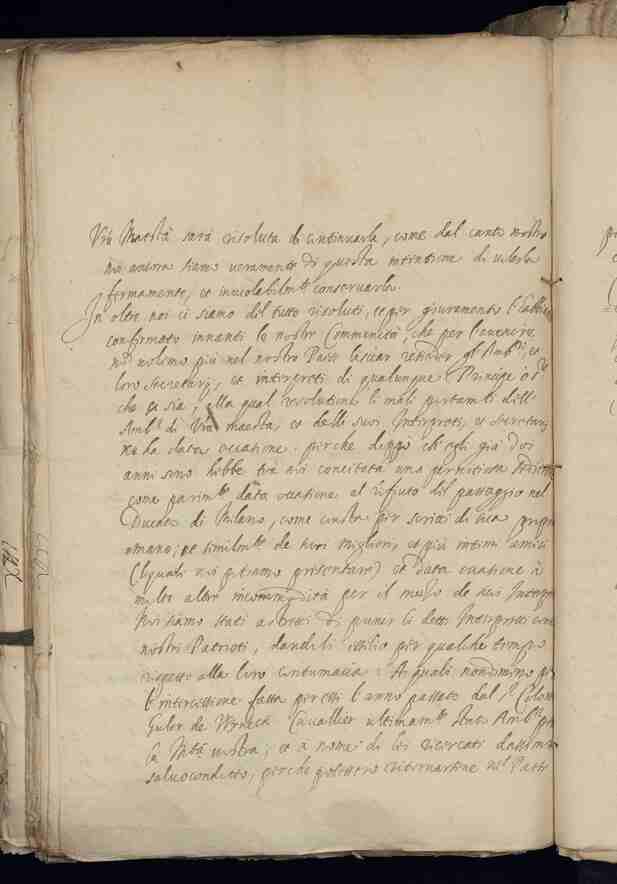 Vrã Maestà sarà risoluta di continuarla, come dal canto nostro
noi ancora siamo veramente di questa intentione di volerla
fermamente, et inviolabilmte conservarla.
In oltre noi ci siamo del tutto risoluti, et per giuramento l'habbia
confirmato innanti le nostre Communità, che per l'avenire
nõ volemo più nel nostro Paese lasciar gl'Ambri, et
loro Secretarij, et interpreti di qualunque Principe
che si sia, alla qual resolutione li mali portamti dell'
Ambr di Vrã maestà, et delli suoi Interpreti, et Secretarij
ha data occatione. perche doppò ch'egli già doi
anni sono hebbe tra noi concitata una perniciosa
come parimte data occatione al rifiuto del passaggio nel
Ducato di Milano, come consta per scritti di sua propria
mano; et similmte de suoi migliori, et più intimi amici
(li quali noi potemo presentare) et data occatione à
molte altre incommodità per il mezo de suoi Interpr
Noi siamo stati astretti di punir li detti Interpreti come
nostri Patrioti, dandoli essilio per qualche tempo
rispetto alla loro contumacia. A quali nondimeno per
l'intercessione fatta per essi l'anno passato dal Sr Colon
Guler de Wineck Cavallier ultimamte stato Ambr pr
la Mtà vostra; et a nome di lei ricercati dassimo
salvocondotto, perche potessero ritornarsene nel Paese